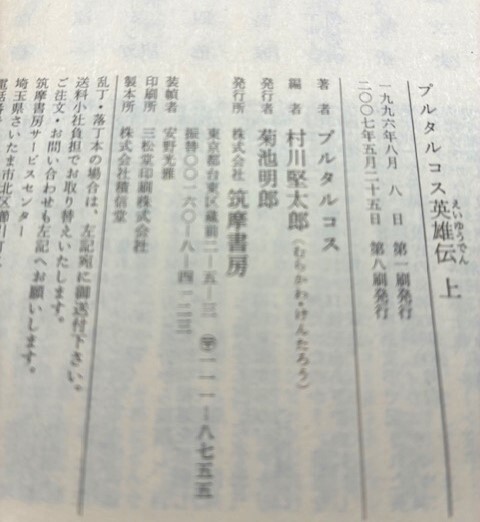 プルタルコス英雄伝 上
えいゆうでん
一九九六年八月 八 日 第一刷発行
二〇〇七年五月二十五日 第八刷発行
著 者 プルタルコス
編 者 村川堅太郎（むらかわ・けんたろう）
発行者 菊池明郎
発行所 株式会社 筑摩書房
東京都台東区蔵前二―五―三 〒一一一―八七五五
振替〇〇一六〇―八―四一二三
装幀者 安野光雅
印刷所 三松堂印刷株式会社
製本所 株式会社積信堂
乱丁・落丁本の場合は、左記宛に御送付下さい。
送料小社負担でお取り替えいたします。
ご注文・お問い合わせも左記へお願いします。
筑摩書房サービスセンター
埼玉県さいたま市北区櫛引町
電話番号